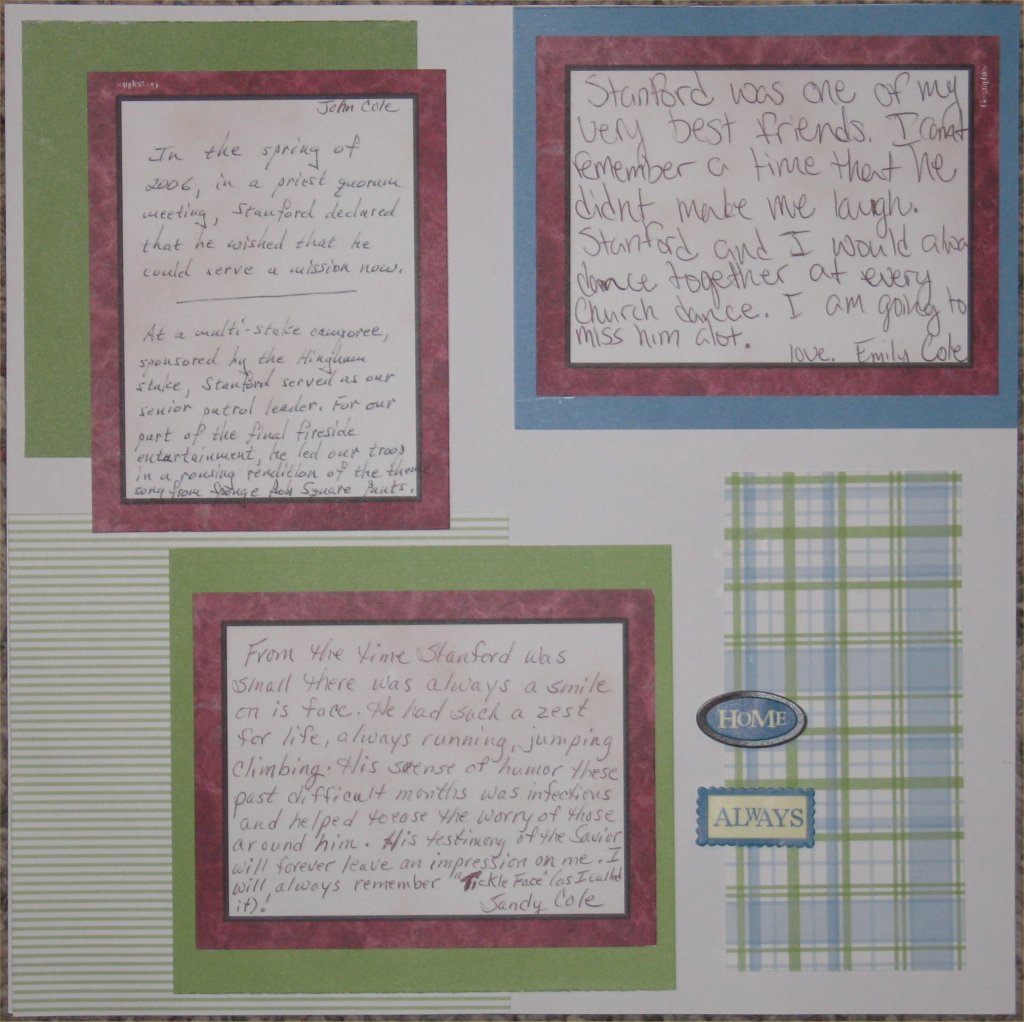 Geographics
John Cole
In the spring of
2006, in a priest quorum
meeting, Stanford declared
that he wished that he
could serve a mission now.
At a multi-stake camporee,
sponsored by the Hingham
stake, Stanford served as our
senior patrol leader. For our
part of the final fireside
entertainment, he led our troop
in a rousing rendition of the theme
song from Sponge Bob Square Pants.
Geographics
Stanford was one of my
very best friends. I cannot
remember a time that he
didnt make me laugh.
Stanford and I would always
dance together at every
Church dance. I am going to
miss him alot.
love, Emily Cole
From the time Stanford was
small there was always a smile
on is face. He had such a zest
for life, always running, jumping
climbing. His sense of humor these
past difficult months was infectious
and helped to ease the worry of those
around him. His testimony of the Savior
will forever leave an impression on me. I
will always remember "Tickle Face" (as I called
it)!
Sandy Cole
HOME
ALWAYS